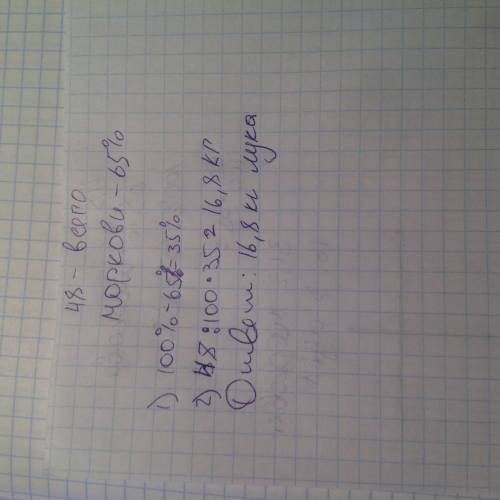 48 - всего
моркови - 65%
1) 100% - 65% = 35%
2) 48 : 100 • 35 = 16,8 кг
Ответ: 16,8 кг лука